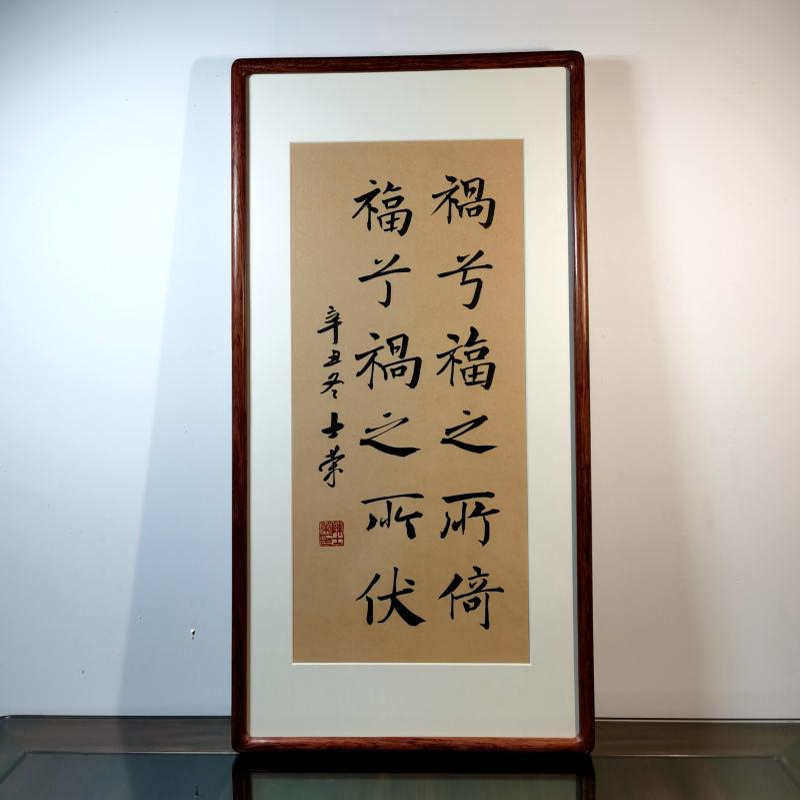 禍兮福之所倚
福兮禍之所伏
辛丑冬 士榮